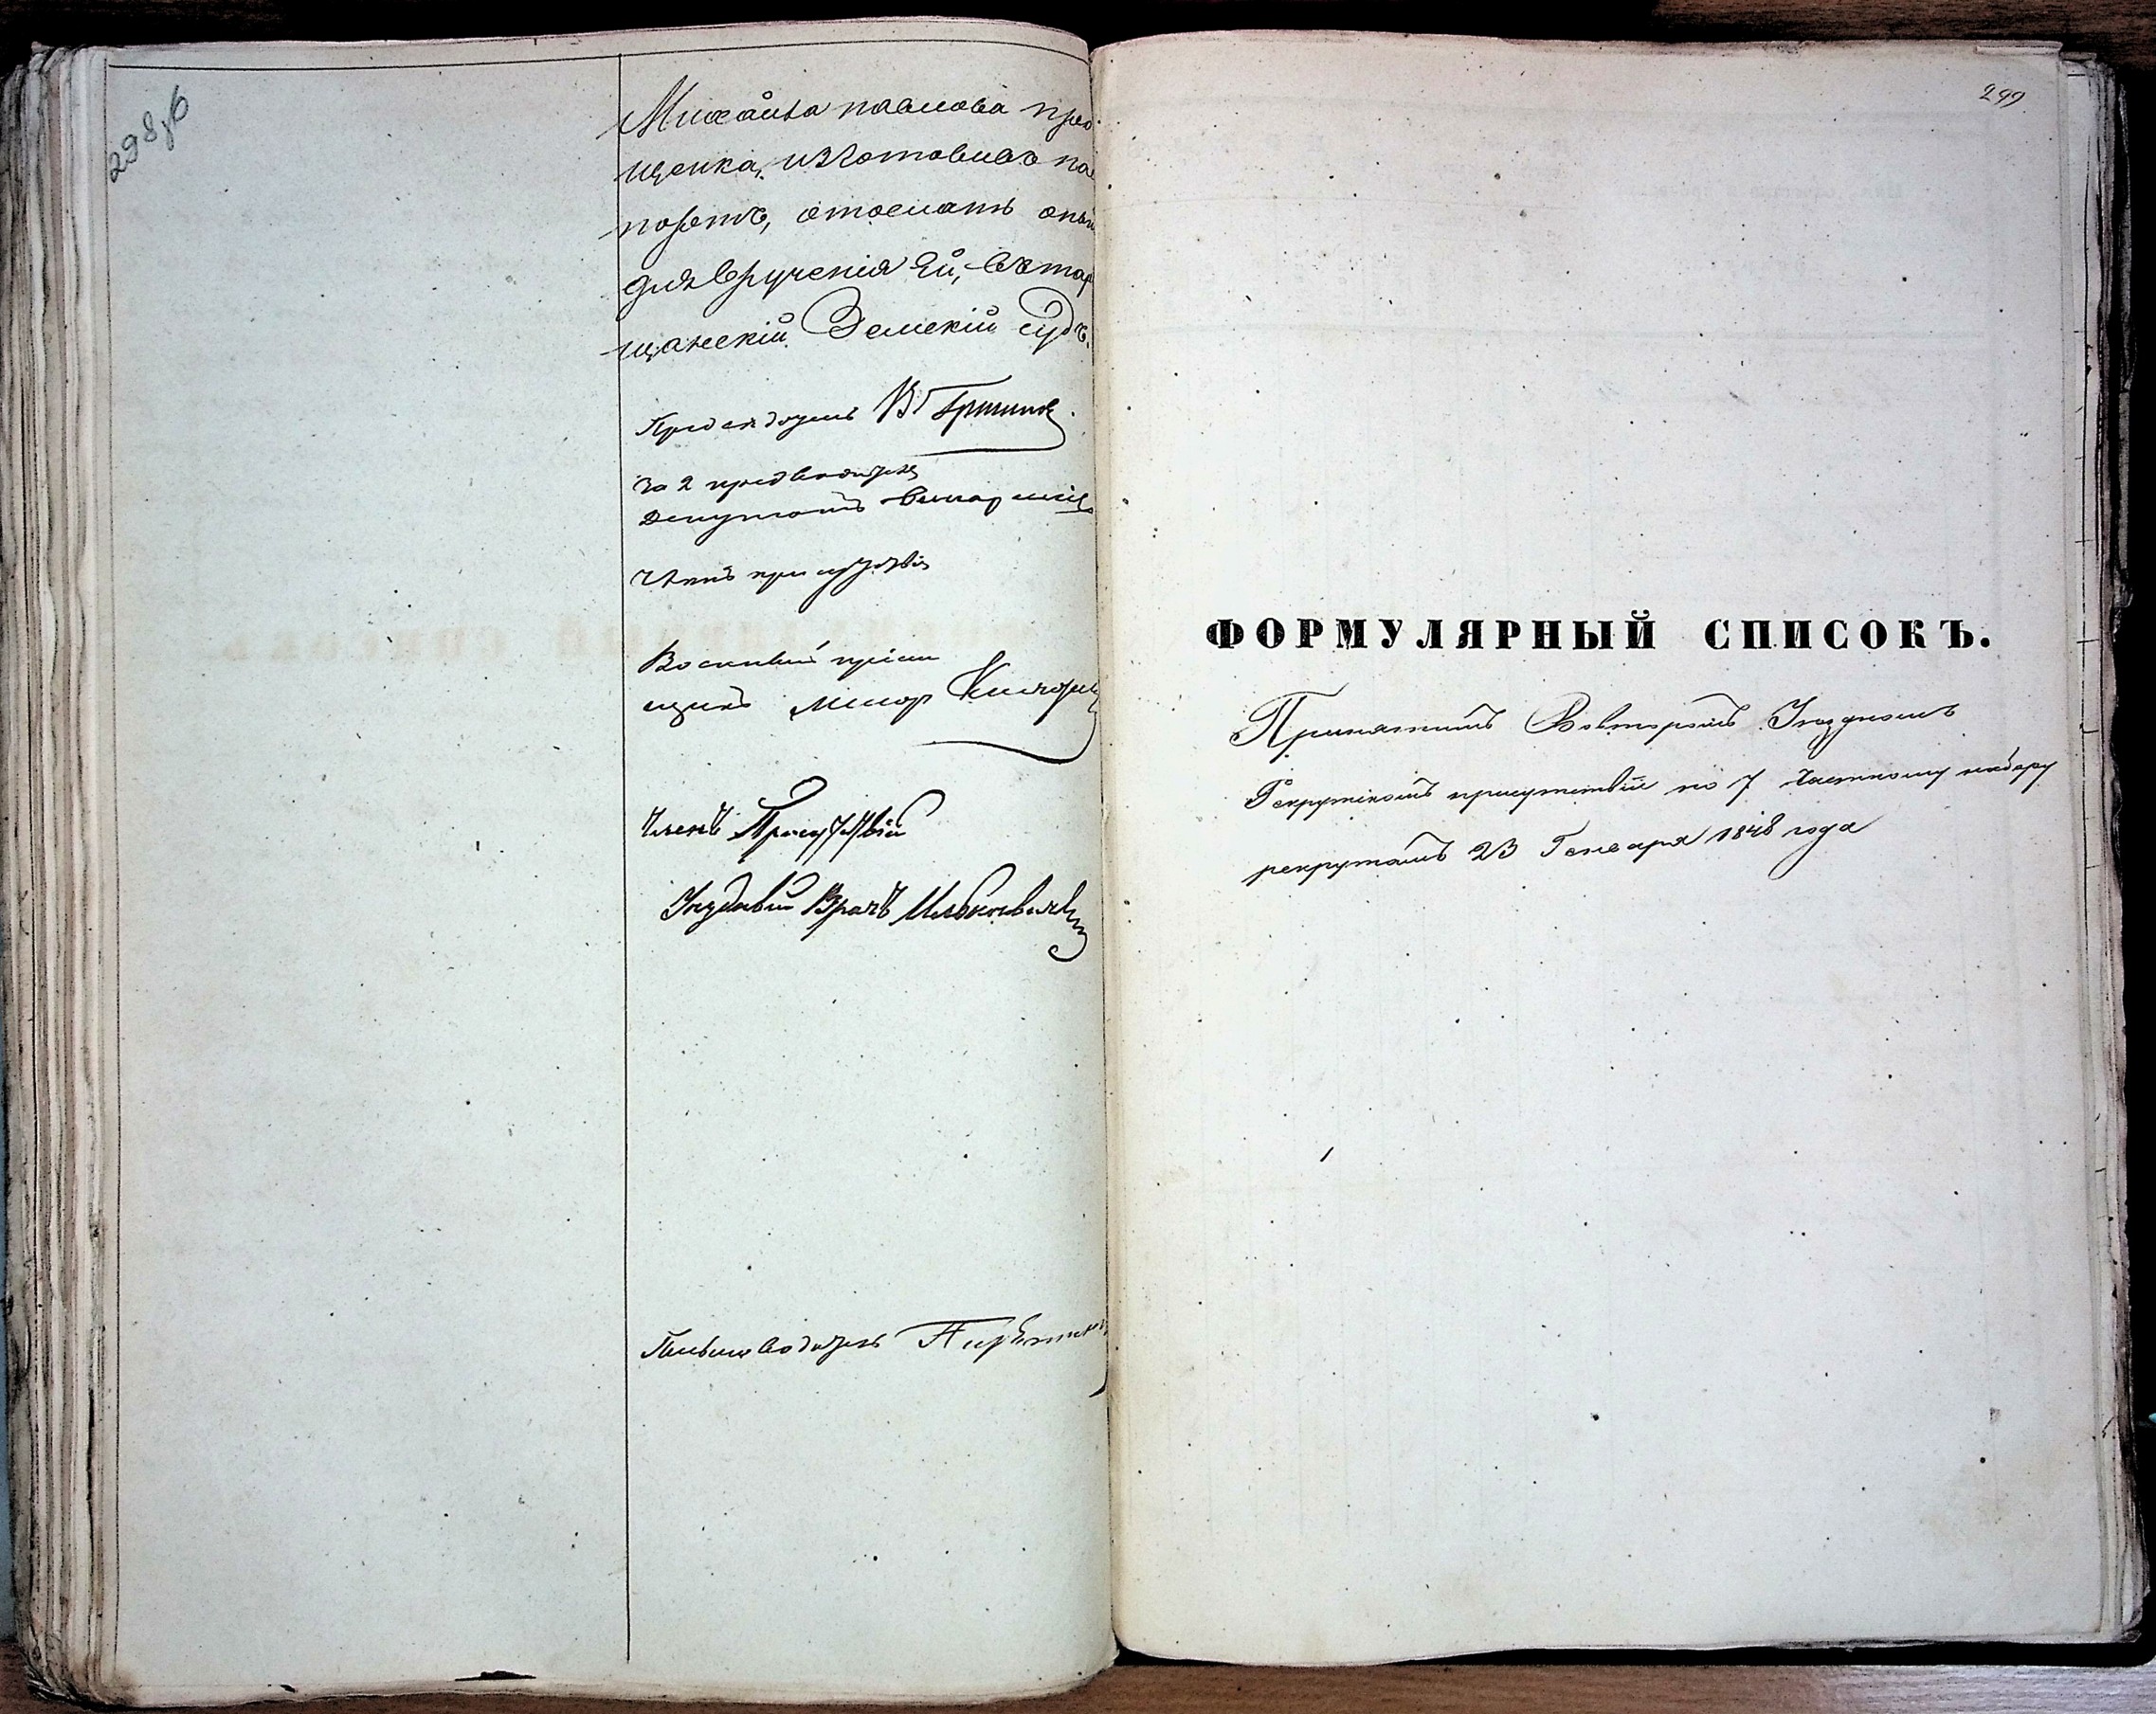 298об
Михайла Павлова Про
щенка, изготовивъ па
портъ, отослать оный
для врученія Ей, въ Тар
щанскій Земскій Судъ.
Председатель
За 2 предводителя
Депутатъ
Членъ присутствія
Военный пріем
щикъ Маіор
Членъ Присутствія
Уездный Врачъ
Письмоводитель
299
ФОРМУЛЯРНЫЙ СПИСОКЪ.
Принятымъ Вовторомъ Уездномъ
Рекрутскомъ присутствіи по 7 частному набору
рекрутамъ 23 Генваря 1848 года